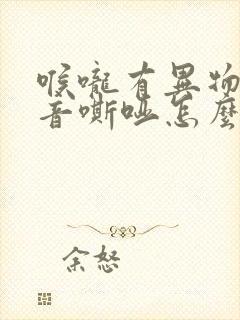 喉嚨有異物
音嘶啞怎麼
余怒